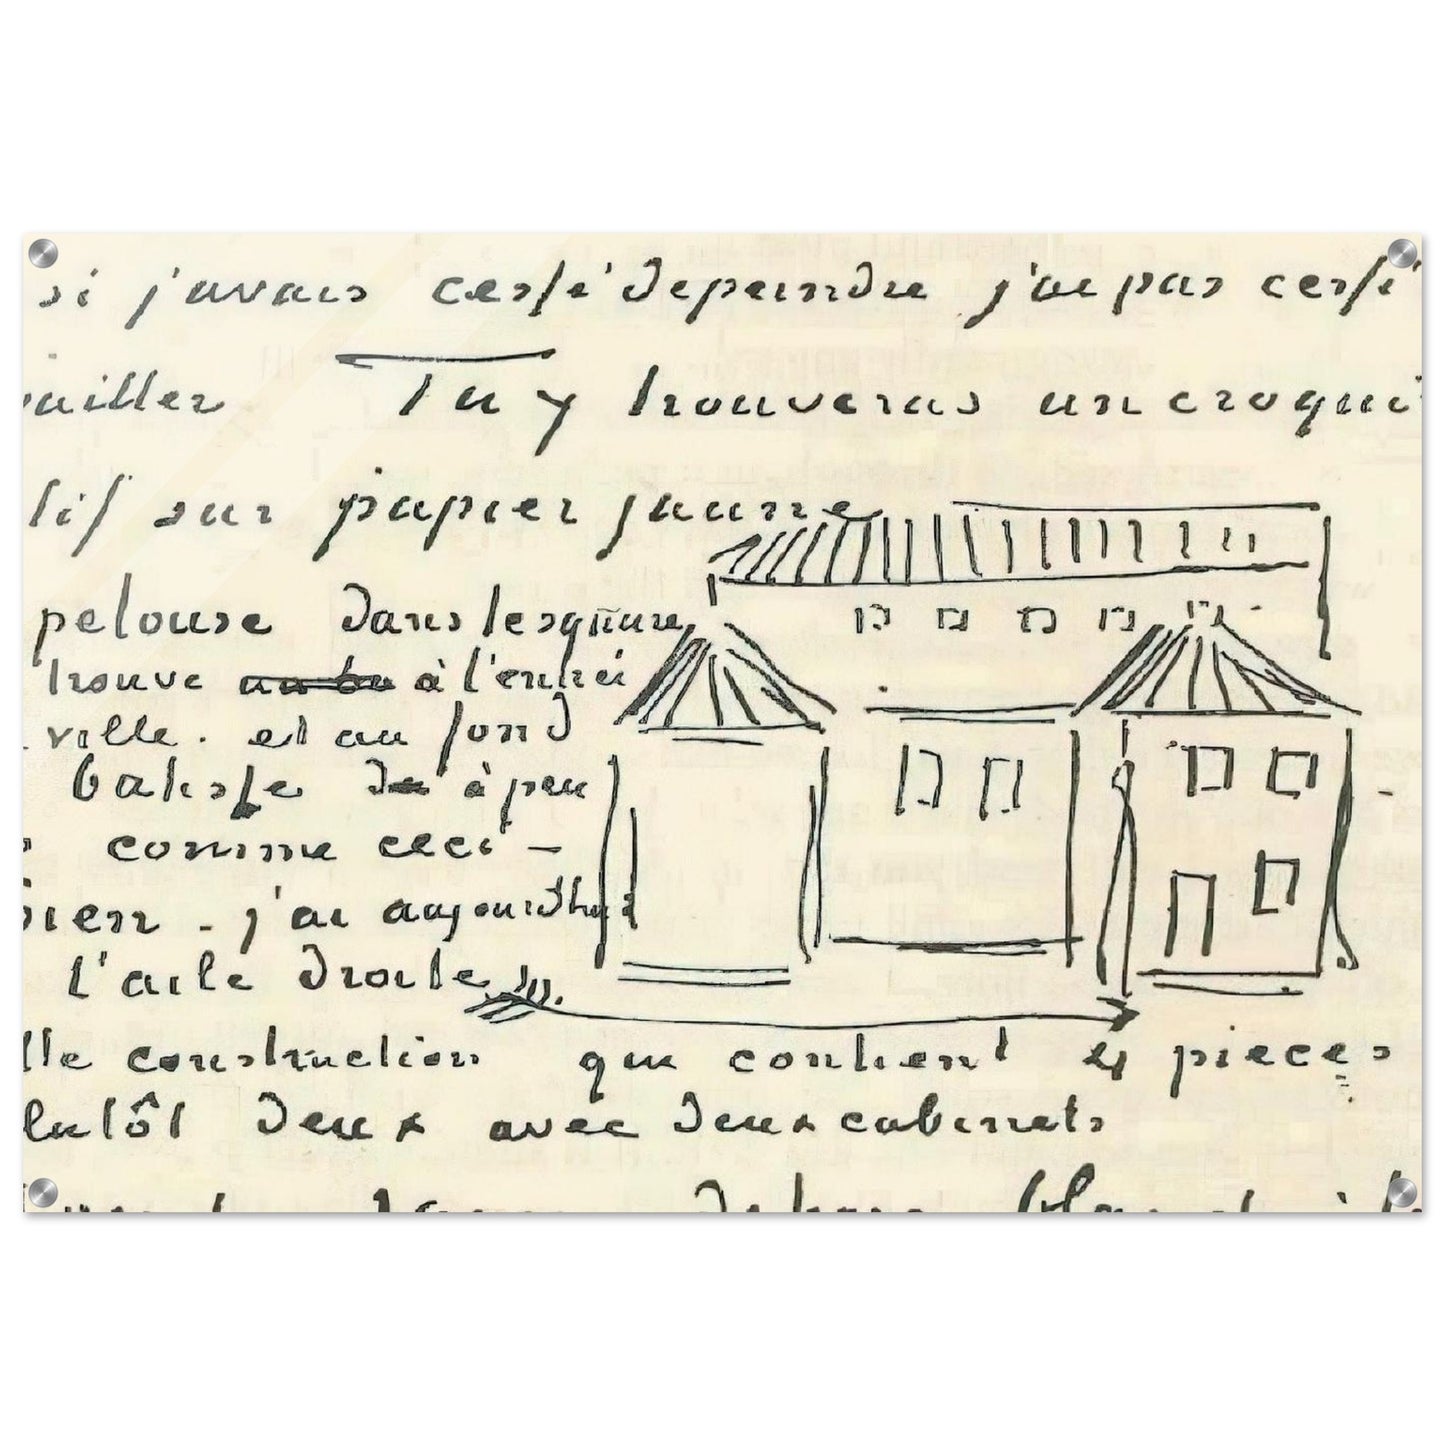 si j'avais cessé de peindre j'ai pas cessé
vailler Tu y trouveras un croqui
tif sur papier jaune
pelouse dans le square
trouve à l'entrée
ville. et au fond
batisse à peu
comme ceci -
bien - j'ai aujourdhui
l'aile droite
lle construction qui contient 4 pieces
lutôt deux avec deux cabinets